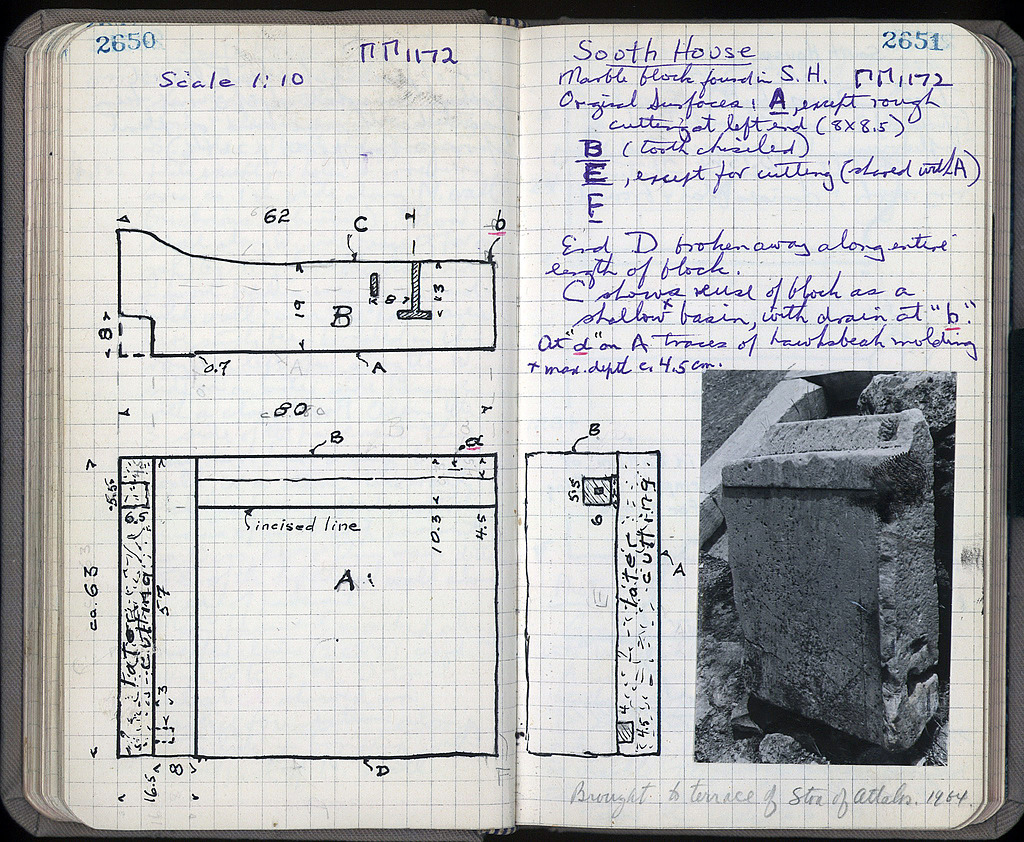 2650
ΠΠ 1172
Scale 1:10
62
C
b
19
B
8
13
8
0.7
A
80
B
d
5.5
6.5
incised line
10.3
4.5
A
ca. 63
later cutting
57
3
16.5
8
D
2651
South House
Marble block found in S. H. ΠΠ 1172
Original Surfaces: A, except rough
cutting at left end (8x8.5)
B (tooth chiseled)
E, except for cutting (shared with A)
F
End D broken away along entire
length of block.
C shows reuse of block as a
shallow + basin, with drain at "b."
At "d" on A traces of hawksbeak molding
+ max. depth c. 4.5 cm.
B
5.5
6
later cutting
A
E
4
4.5
Brought to terrace of Stoa of Attalos. 1964.